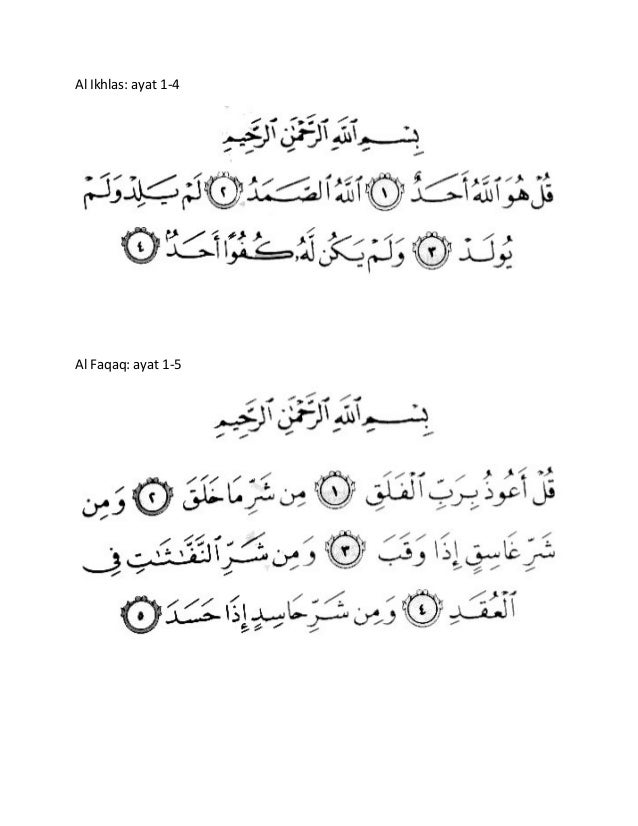 Al Ikhlas: ayat 1-4
بِسْمِ ٱللَّهِ ٱلرَّحْمَٰنِ ٱلرَّحِيمِ
قُلْ هُوَ ٱللَّهُ أَحَدٌ ١ ٱللَّهُ ٱلصَّمَدُ ٢ لَمْ يَلِدْ وَلَمْ
يُولَدْ ٣ وَلَمْ يَكُن لَّهُۥ كُفُوًا أَحَدٌۢ ٤
Al Faqaq: ayat 1-5
بِسْمِ ٱللَّهِ ٱلرَّحْمَٰنِ ٱلرَّحِيمِ
قُلْ أَعُوذُ بِرَبِّ ٱلْفَلَقِ ١ مِن شَرِّ مَا خَلَقَ ٢ وَمِن
شَرِّ غَاسِقٍ إِذَا وَقَبَ ٣ وَمِن شَرِّ ٱلنَّفَّٰثَٰتِ فِى
ٱلْعُقَدِ ٤ وَمِن شَرِّ حَاسِدٍ إِذَا حَسَدَ ٥